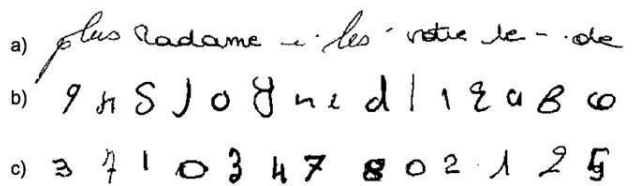 a) plus Madame - i les notre le - de
b) 9 n S J o y n e d l 1 q a B co
c) 3 7 1 0 3 4 7 8 0 2 1 2 5